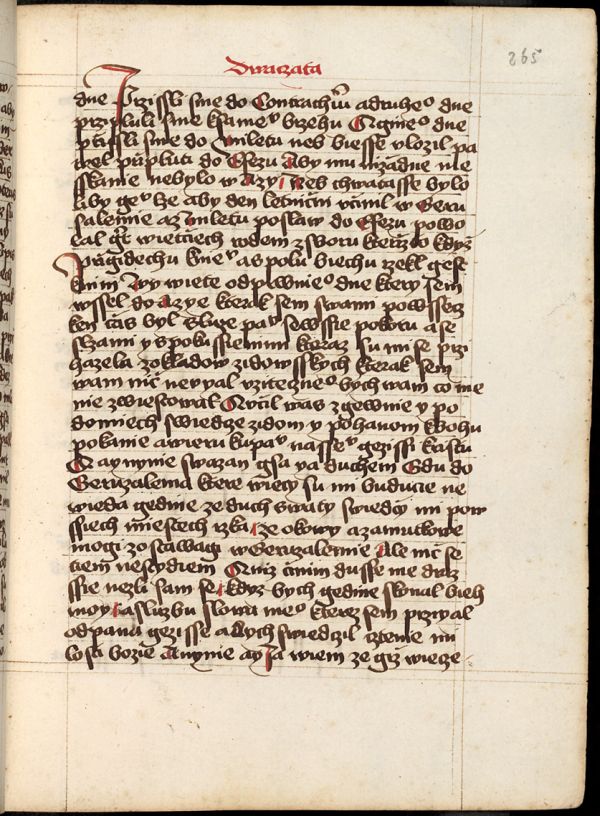 Dwaczata
265
dne Przissli sme do Contrachiu a druheo dne
przipluli sme k sameu brzehu A gineo dne
przissli sme do miletu neb biesse vlozil pa
wel przipluti do Efezu Aby mu nizadne me
sskanie nebylo w azy Neb chwatasse bylo
liby geu ze aby den letnicini vcinil w Geru
salemie a z miletu poslaw do Efezu powo
lal gt wietciech rodem z sboru kterzto kdyz
Przigidechu k nieu a spolu biechu rzekl gest
k nim Wy wiete od prwnieo dne ktery sem
wssel do azye kterak sem s wami po wssecz
ken czas byl Sluze panu se wssie pokoru a se
slzami y s pokussienimi kteraz su mi se przi
hazela z okladow zidowsskych kterak sem
wam nic neuyal vziteczneo bych wam to ne
nie zwiestowal A vcil was zgewnie y po
domiech Swiedcze zidom y pohanom k bohu
pokanie a wieru k panu nasseu gezissi kristu
A ay nynie swazan gsa ya duchem Gdu do
Geruzalema ktere wiecy su mi buducie ne
wieda gedine ze duch swaty swiedcy mi po w
ssiech miestech rzka ze okowy a zamutkowe
mogi zostawagi w Geruzalemie Ale nic se
tiem nestydiem Aniz cinim dusse me draz
ssie nezli sam se kdyz bych gedine skonal bieh
moy a sluzbu slowa meo kterez sem przigal
od pana gezisse abych swiedczil cztenie mi
losti bozie A nynie ay Ja wiem ze giz wiecze